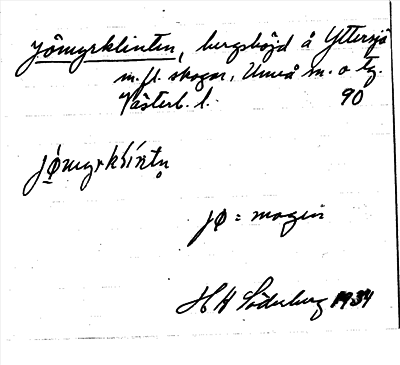 Jömyrklinten, bergshöjd å Yttersjö
m. fl. skogar, Umeå sn. o tg.
Västerb. l. 90
jø = magen
H H Söderberg 1934